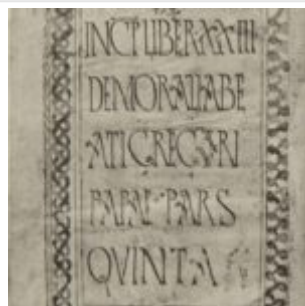 INCP LIBER XXIII
DEMORALIABE
ATI GREGORI
PAPAE PARS
QVINTA